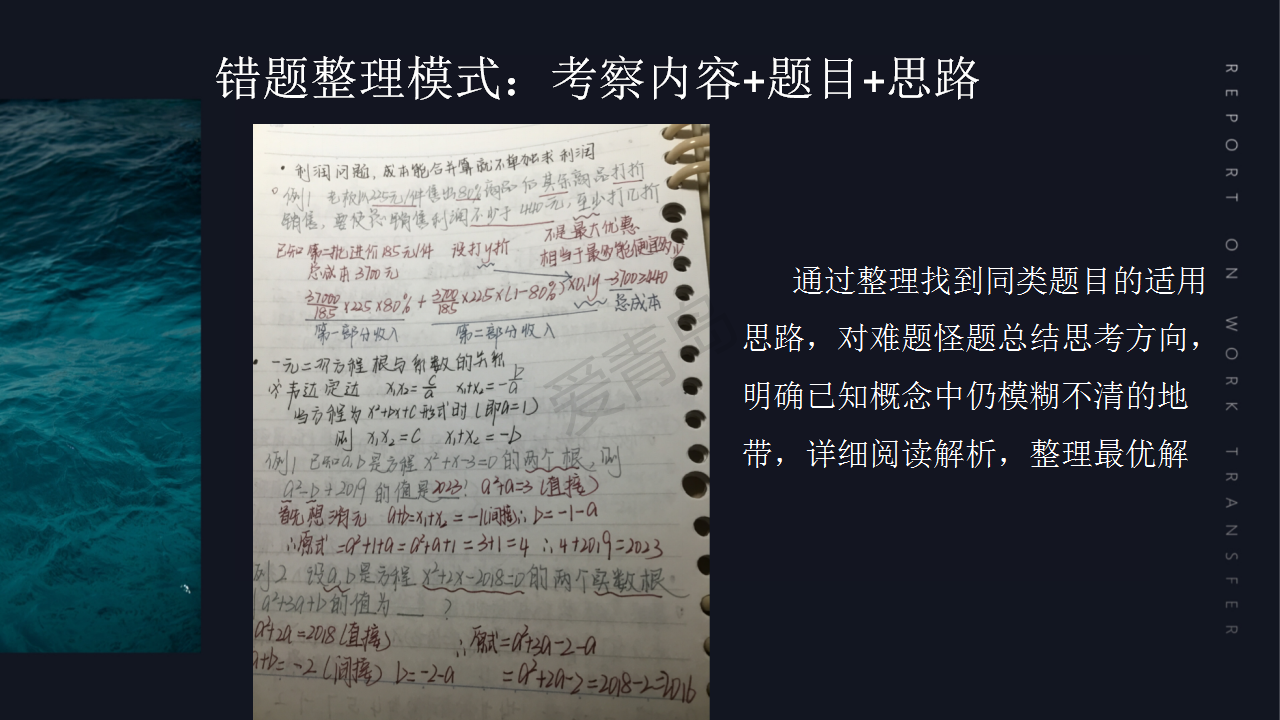 错题整理模式：考察内容+题目+思路
• 利润问题，成本能合并算就不单独求利润
例1 老板以225元/件售出80%商品后其余商品打折
销售，要使总销售利润不少于4440元，至少打几折
不是最大优惠
已知第二批进价185元/件 设打y折
相当于最多能便宜多少
总成本3700元
37000/185×225×80% + 3700/185×225×(1-80%)×0.1y-3700≥440
总成本
第一部分收入 第二部分收入
• 一元二次方程根与系数的关系
※韦达定理 x₁x₂=c/a x₁+x₂=-b/a
当方程为x²+bx+c形式时(即a=1)
则 x₁x₂=c x₁+x₂=-b
例1 已知a,b是方程x²+x-3=0的两个根,则
a²-b+2019的值是2023! a²+a=3(直接)
首先想消元 a+b=x₁+x₂=-1(间接)∴b=-1-a
∴原式=a²+1+a=a²+a+1=3+1=4 ∴4+2019=2023
例2 设a,b是方程x²+2x-2018=0的两个实数根
a²+3a+b的值为___?
a²+2a=2018(直接) ∴原式=a²+3a-2-a
a+b=-2(间接) b=-2-a =a²+2a-2=2018-2=2016
爱青岛
通过整理找到同类题目的适用
思路，对难题怪题总结思考方向，
明确已知概念中仍模糊不清的地
带，详细阅读解析，整理最优解
REPORT ON WORK TRANSFER